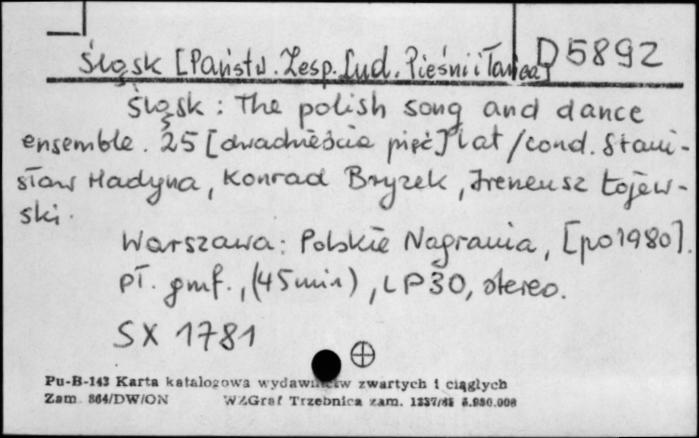 Śląsk [Państw. Zesp. Lud. Pieśni i Tańca] D 5892
Śląsk : The polish song and dance
ensemble. 25 [dwadzieścia pięć] lat / cond. Stani-
sław Hadyna, Konrad Bryzek, Ireneusz Łojew-
ski.
Warszawa: Polskie Nagrania, [po 1980].
pł. gmf., (45 min), LP30, stereo.
SX 1781
Pu-B-143 Karta katalogowa wydawnictw zwartych i ciągłych
Zam. 864/DW/ON WZGraf Trzebnica zam. 1237/81 5.930.000